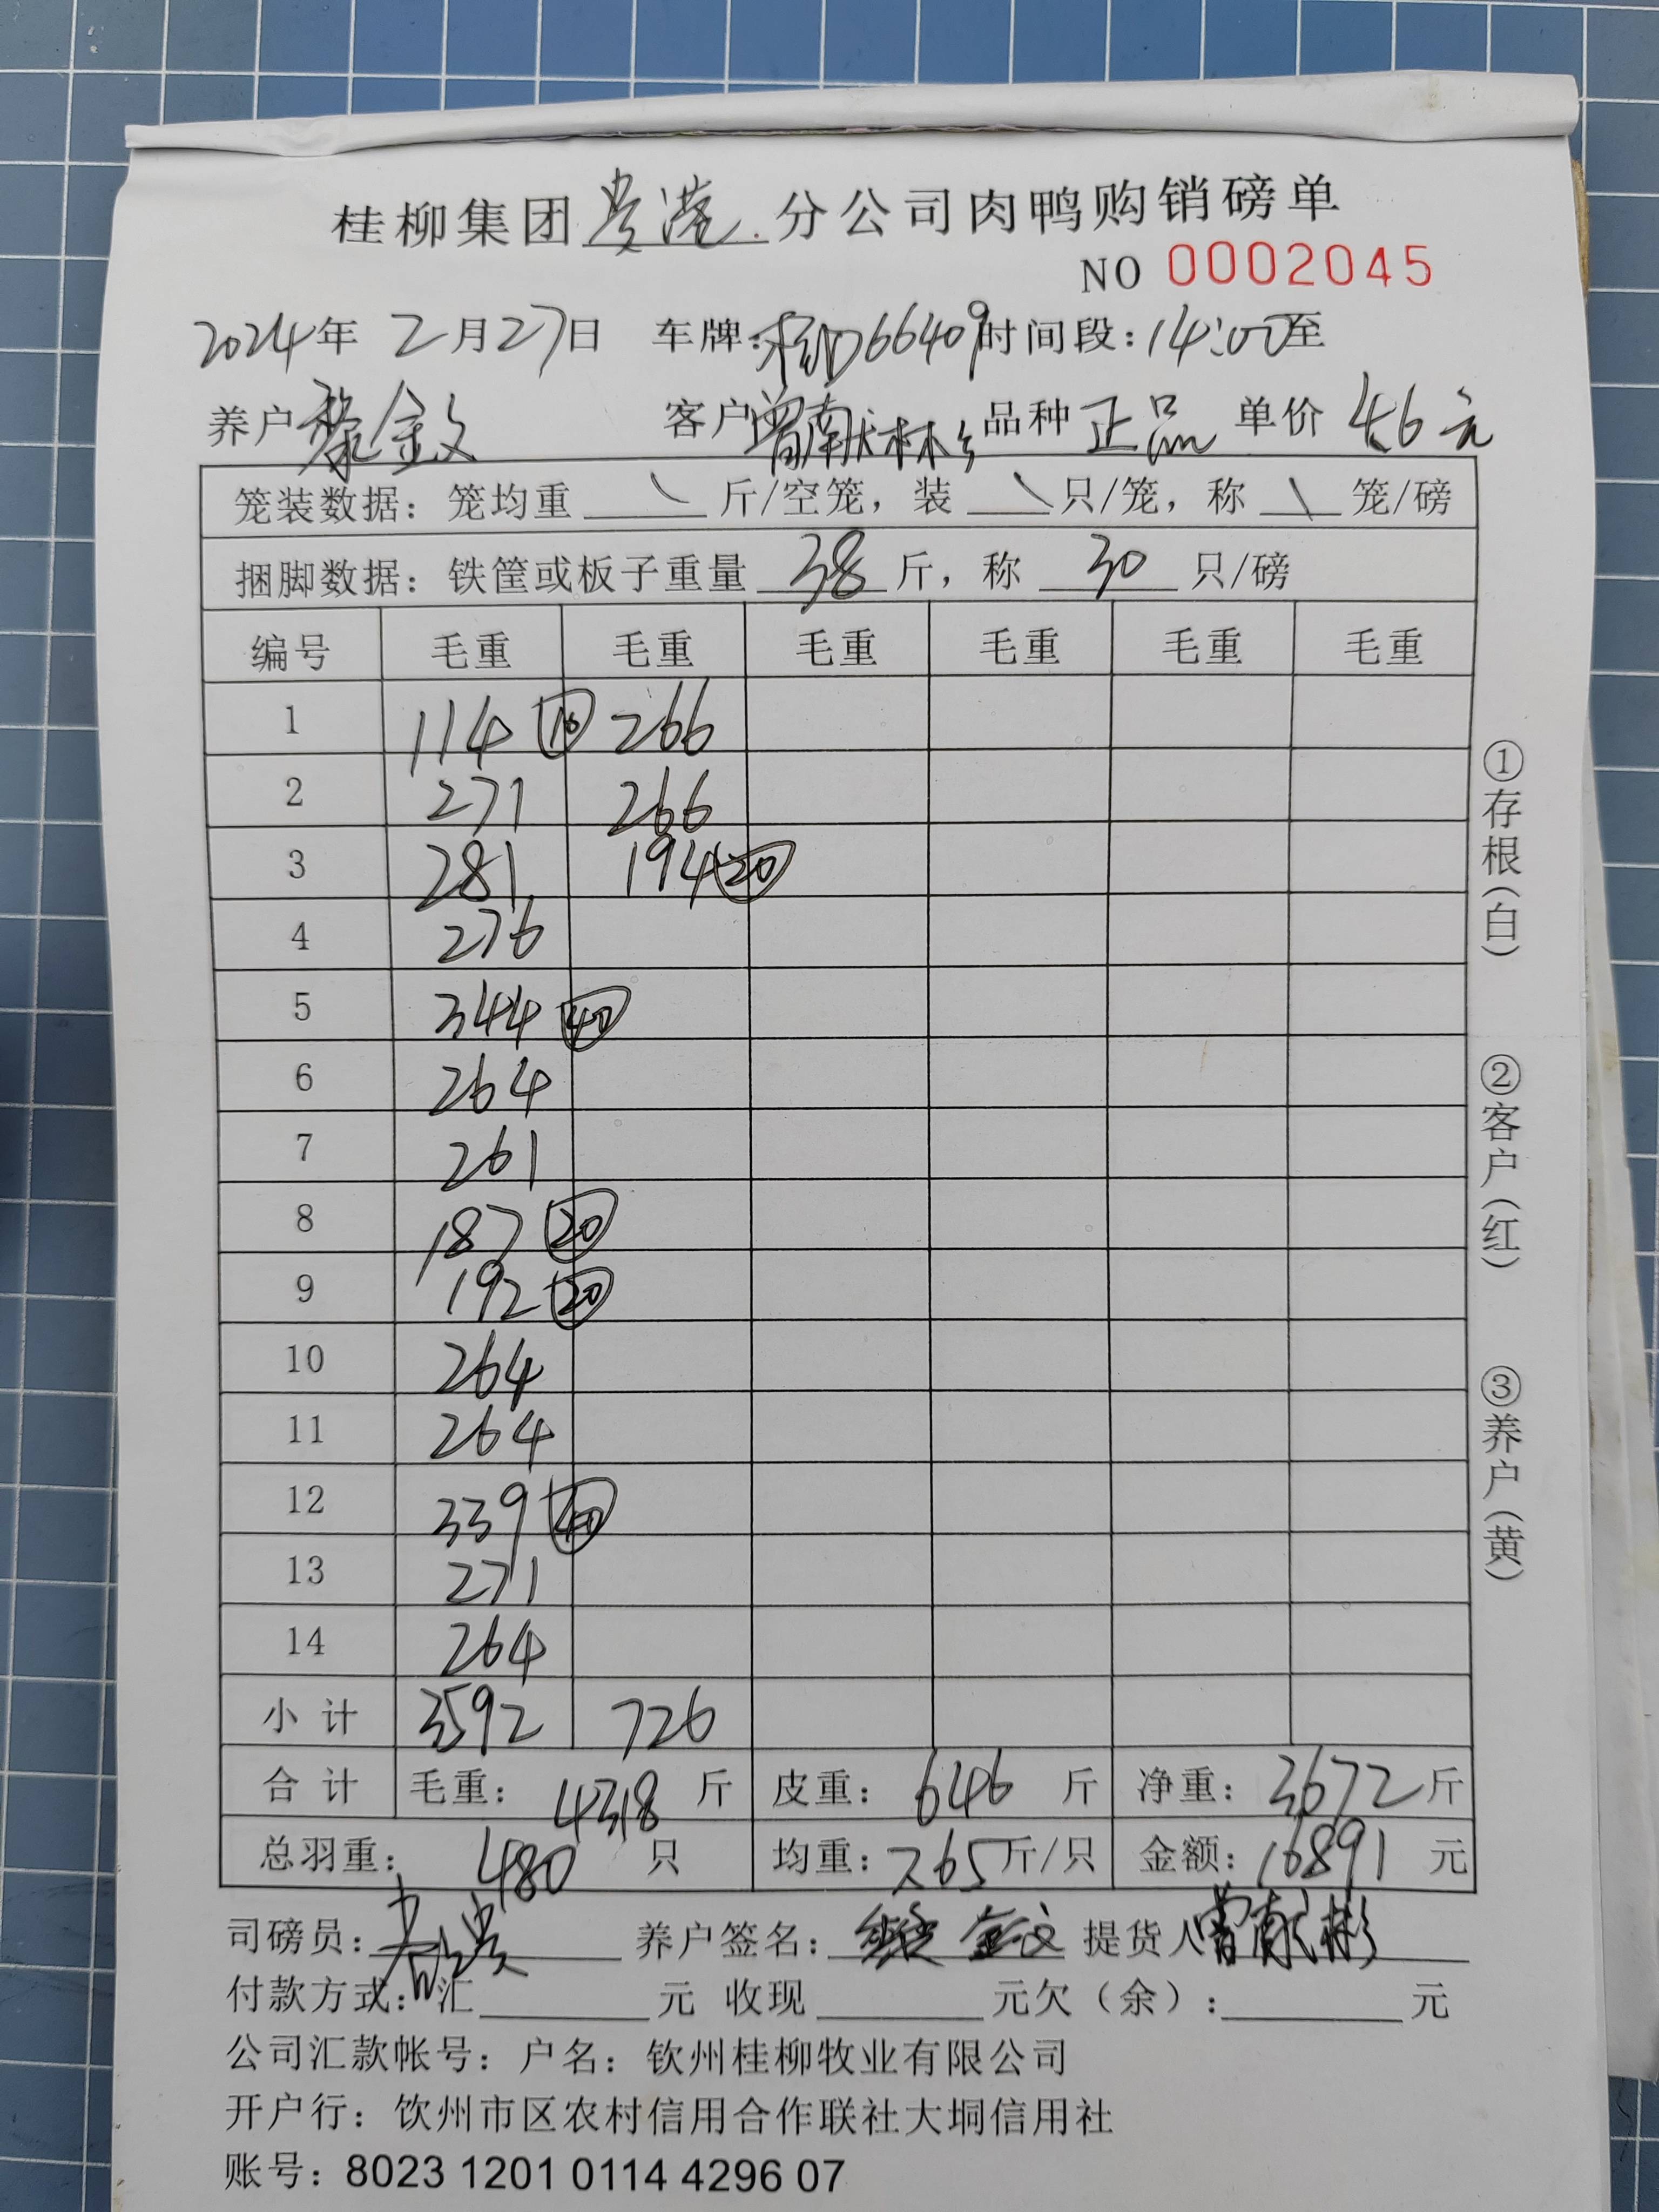 桂柳集团贵港分公司肉鸭购销磅单
NO 0002045
2024年 2月27日 车牌:桂D66409 时间段:14:00至
养户 黎金文 客户 曾献林 品种 正品 单价 4.6元
笼装数据: 笼均重 \ 斤/空笼, 装 \ 只/笼, 称 \ 笼/磅
捆脚数据: 铁筐或板子重量 38 斤, 称 30 只/磅
编号 毛重 毛重 毛重 毛重 毛重 毛重
1 114 10 266
2 271 266
3 281 194 20
4 276
5 344 40
6 264
7 261
8 187 20
9 192 20
10 264
11 264
12 339 40
13 271
14 264
小计 3592 726
合计 毛重: 4318 斤 皮重: 646 斤 净重: 3672斤
总羽重: 480 只 均重: 7.65斤/只 金额: 16891 元
司磅员: 养户签名: 金文 提货人 曾献彬
付款方式: 汇 元 收现 元欠(余): 元
公司汇款帐号: 户名: 钦州桂柳牧业有限公司
开户行: 饮州市区农村信用合作联社大垌信用社
账号: 8023 1201 0114 4296 07
①存根(白)
②客户(红)
③养户(黄)